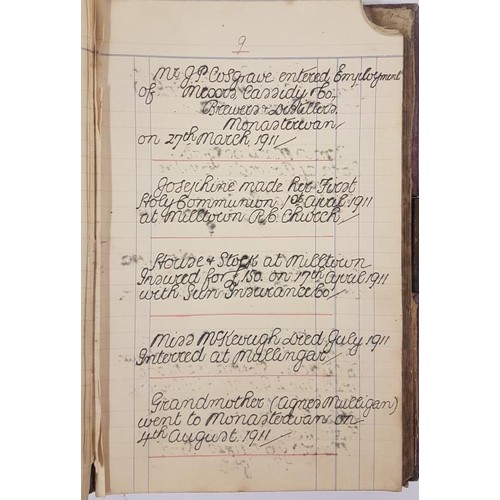 9
Mr J.P. Cosgrave entered Employment
of Messrs Cassidy & Co,
Brewers & Distillers,
Monasterevan
on 27th March, 1911
Josephine made her First
Holy Communion 1st April 1911
at Milltown R.C. Church,
House & Stock at Milltown
Insured for £150. on 17th April 1911
with Sun Insurance Co
Miss McKeough Died July 1911
Interred at Mullingar
Grandmother (Agnes Mulligan)
went to Monasterevan on
4th August, 1911